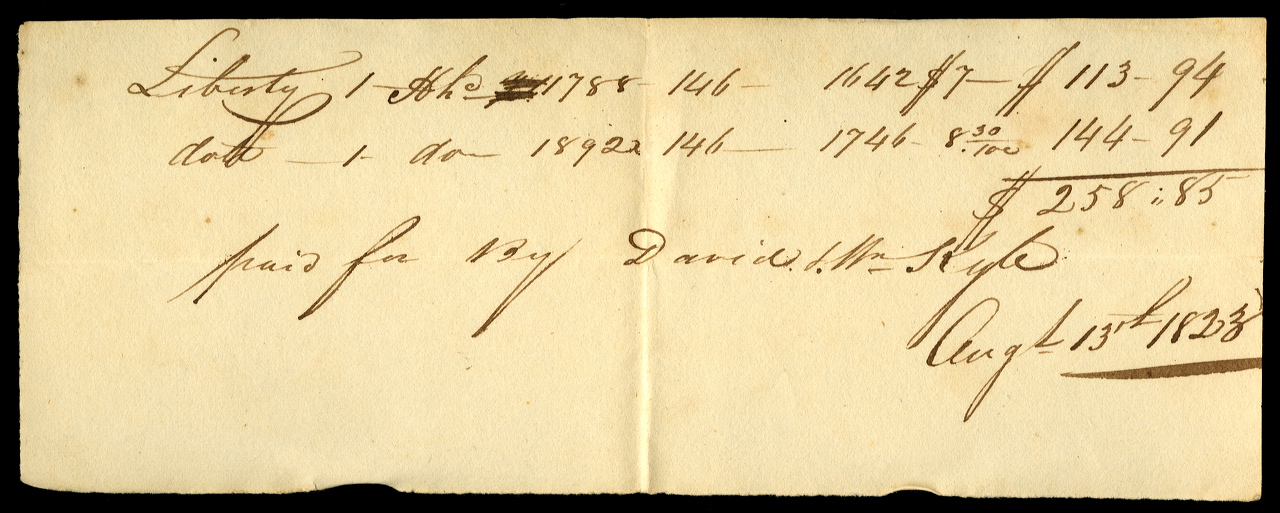 Liberty 1 - Hhd 1788 - 146 - 1642 $7 - $ 113 - 94
ditto - 1 - do - 1892 146 - 1746 - 8 30/100 144 - 91
$ 258 : 85
paid for By David & Wm Kyle
Augt 13th 1823